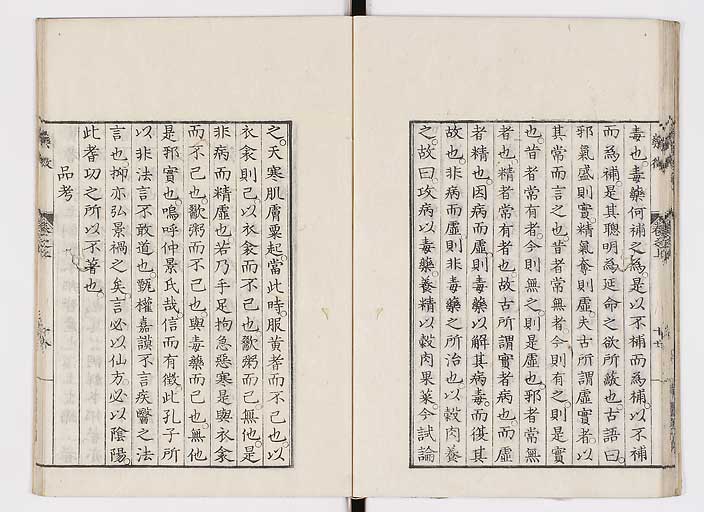 毒也。毒藥何補之爲。是以不補而爲補。以不補
而爲補。是其聰明爲延命之欲所蔽也。古語曰。
邪氣盛則實。精氣奪則虛。夫古所謂虛實者。以
其常而言之也。昔者常無者。今則有之。則是實
也。昔者常有者。今則無之。則是虛也。邪者常無
者也。精者常有者也。故古所謂實者病也。而虛
者精也。因病而虛。則毒藥以解其病毒。而復其
故也。非病而虛。則非毒藥之所治也。以穀肉養
之。故曰攻病以毒藥。養精以穀肉果菜。今試論
之。天寒肌膚粟起。當此時。服黃耆而不已也。以
衣衾則已。以衣衾而不已也。歠粥而已。無他。是
非病而精虛也。若乃手足拘急惡寒。是與衣衾
而不已也。歠粥而不已也。與毒藥而已也。無他
是邪實也。嗚呼仲景氏哉。信而有徵。此孔子所
以非法言不敢道也。甄權嘉謨不言疾醫之法
言也。抑亦弘景禍之矣。言必以仙方。必以陰陽。
此耆功之所以不著也。
品考